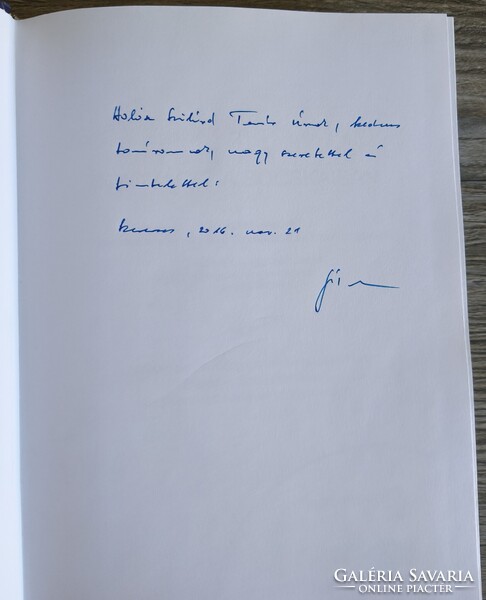 Szilárd Tanár Úrnak, kedves
tanáromnak, nagy szeretettel és
tisztelettel:
2016. nov. 21
GALÉRIA SAVARIA
ONLINE PIACTÉR